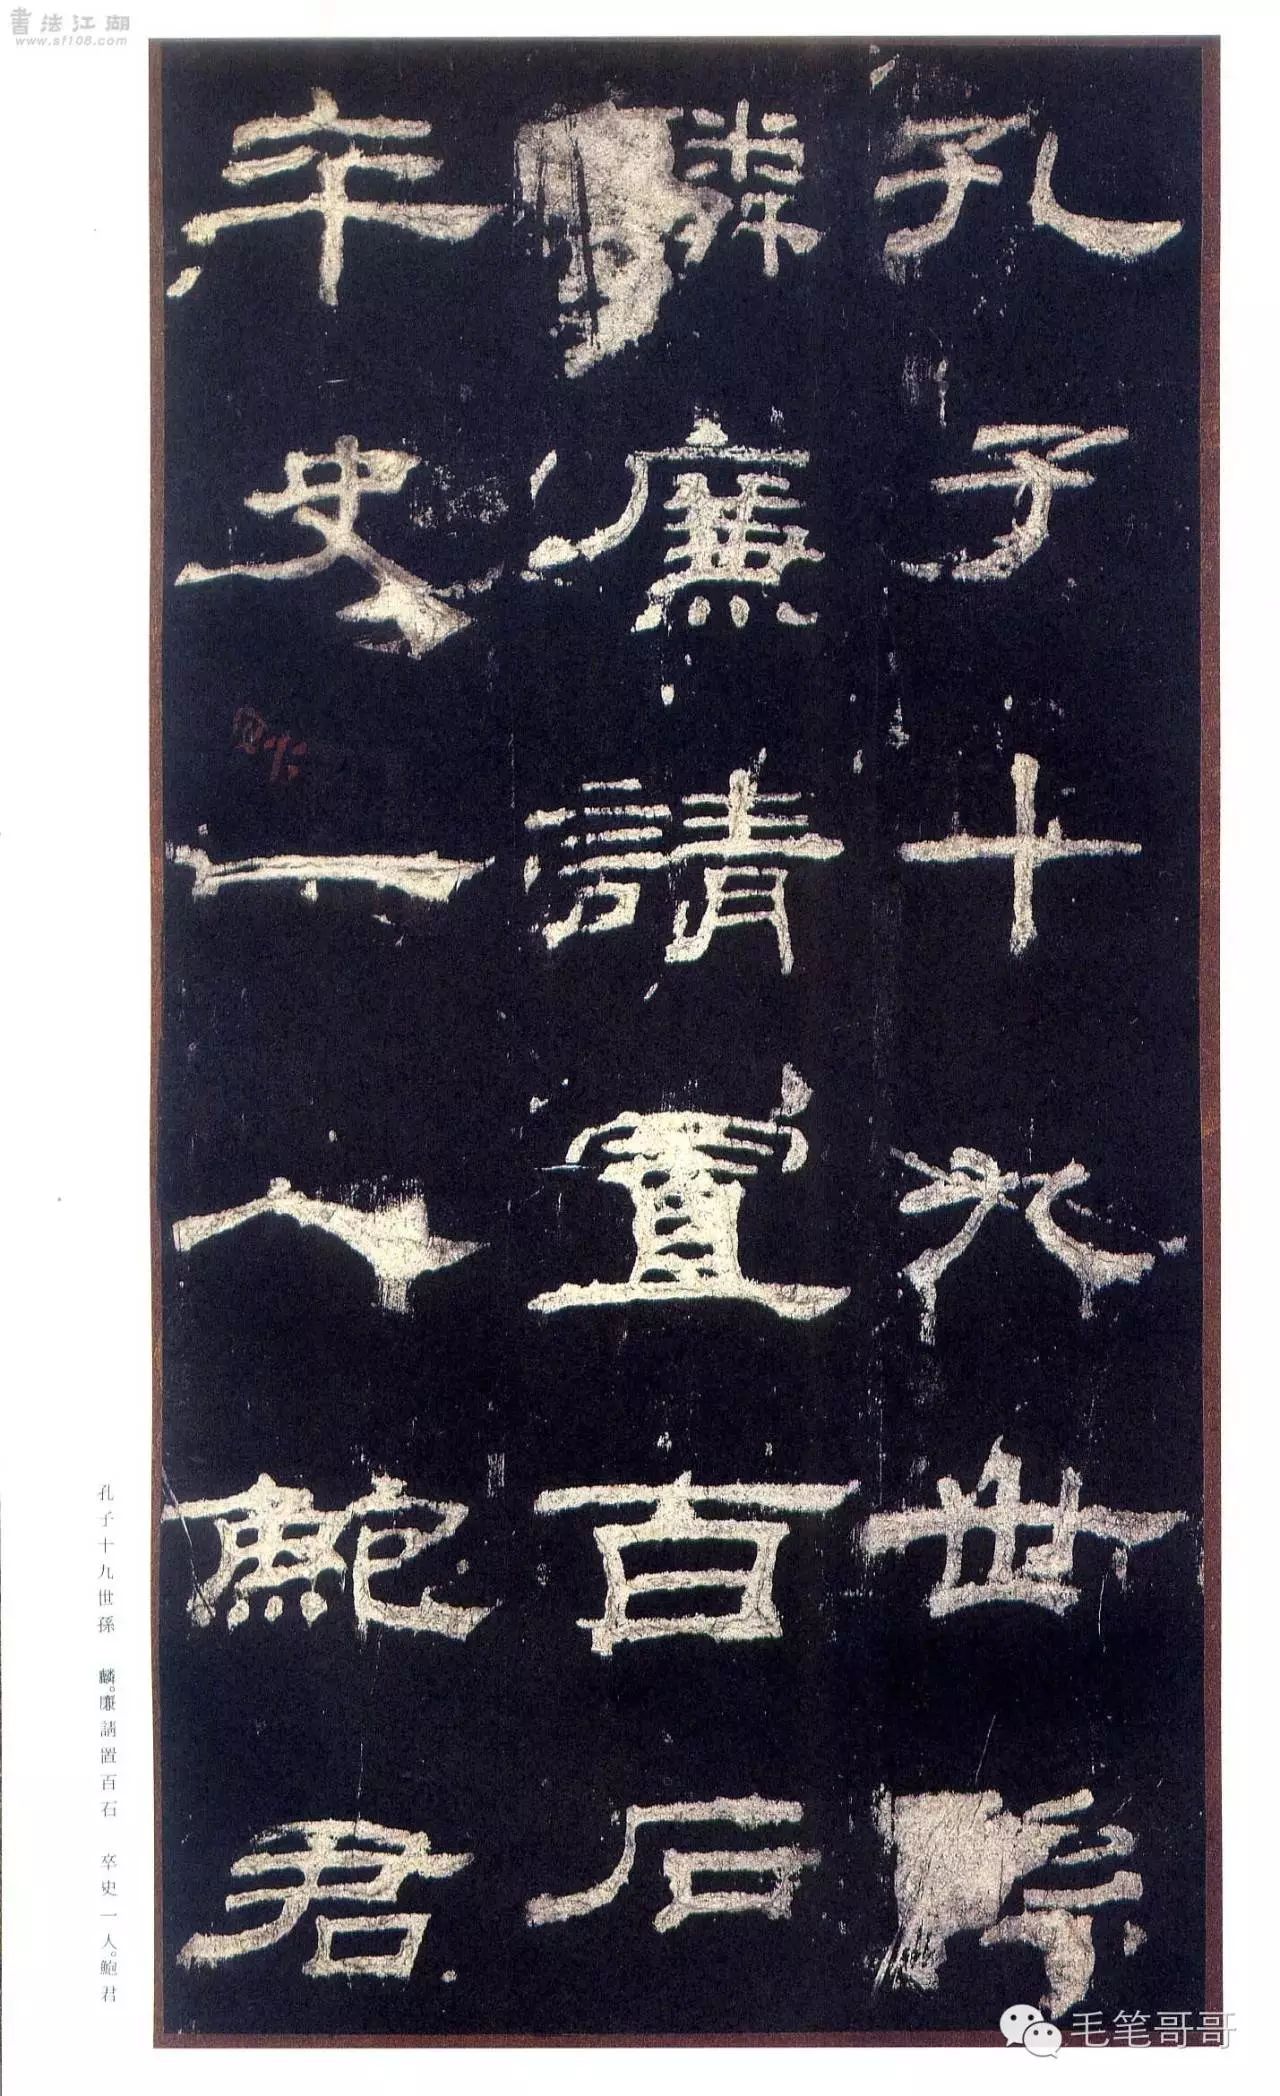 書法江湖
www.sf108.com
孔子十九世孫
麟廉請置百石
卒史一人鮑君
孔子十九世孫　麟。廉請置百石　卒史一人。鮑君
毛笔哥哥